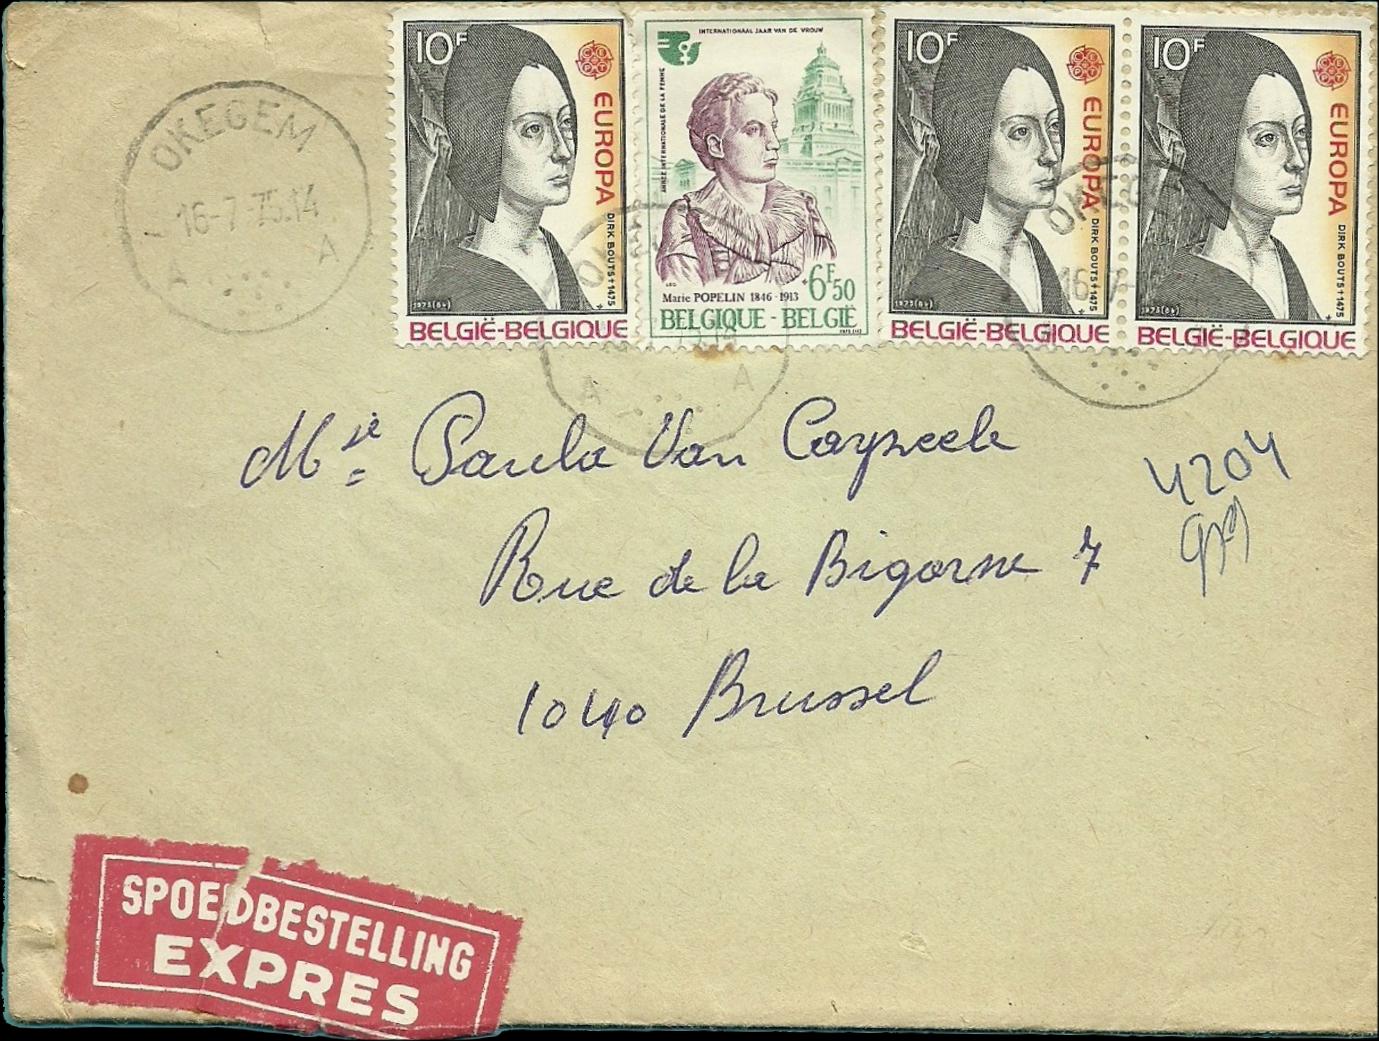 OKEGEM
16-7-75.14
A A
10F
EUROPA
DIRK BOUTS †1475
1975(64)
BELGIË-BELGIQUE
INTERNATIONAAL JAAR VAN DE VROUW
ANNEE INTERNATIONALE DE LA FEMME
+6F50
Marie POPELIN 1846-1913
BELGIQUE - BELGIË
10F
EUROPA
DIRK BOUTS †1475
1975(64)
BELGIË-BELGIQUE
10F
EUROPA
DIRK BOUTS †1475
1975(64)
BELGIË-BELGIQUE
A A
Paula Van
4204
Rue de la Bigorne 7
1040 Brussel
SPOEDBESTELLING
EXPRES